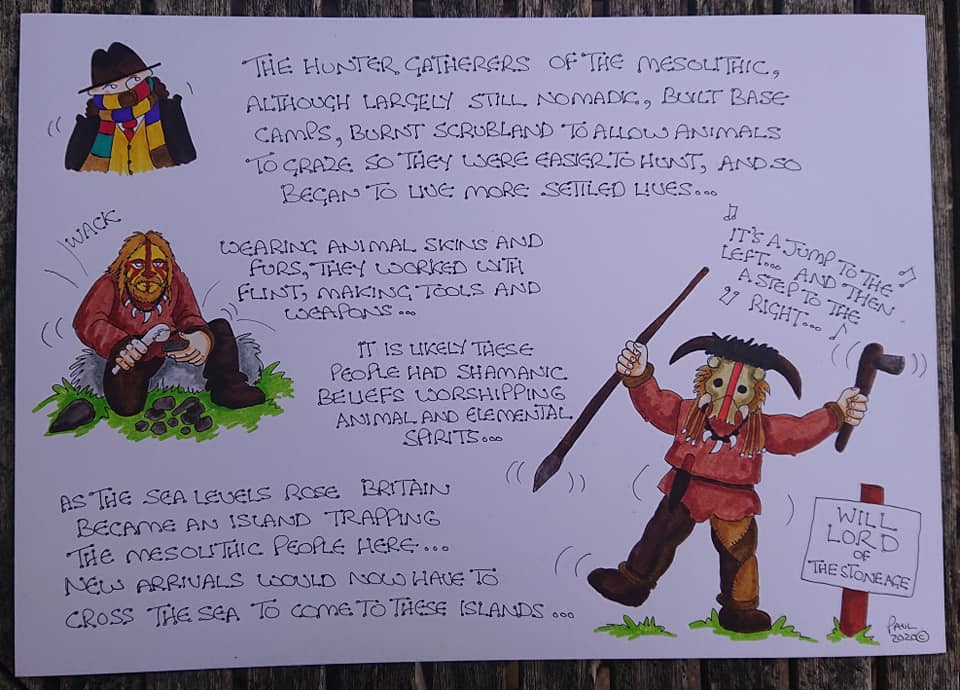 THE HUNTER GATHERERS OF THE MESOLITHIC,
ALTHOUGH LARGELY STILL NOMADIC, BUILT BASE
CAMPS, BURNT SCRUBLAND TO ALLOW ANIMALS
TO GRAZE SO THEY WERE EASIER TO HUNT, AND SO
BEGAN TO LIVE MORE SETTLED LIVES...
WACK
WEARING ANIMAL SKINS AND
FURS, THEY WORKED WITH
FLINT, MAKING TOOLS AND
WEAPONS...
IT'S A JUMP TO THE
LEFT... AND THEN
A STEP TO THE
RIGHT...
IT IS LIKELY THESE
PEOPLE HAD SHAMANIC
BELIEFS WORSHIPPING
ANIMAL AND ELEMENTAL
SPIRITS...
AS THE SEA LEVELS ROSE BRITAIN
BECAME AN ISLAND TRAPPING
THE MESOLITHIC PEOPLE HERE...
NEW ARRIVALS WOULD NOW HAVE TO
CROSS THE SEA TO COME TO THESE ISLANDS...
WILL
LORD
OF
THE STONE AGE
PAUL
2020©